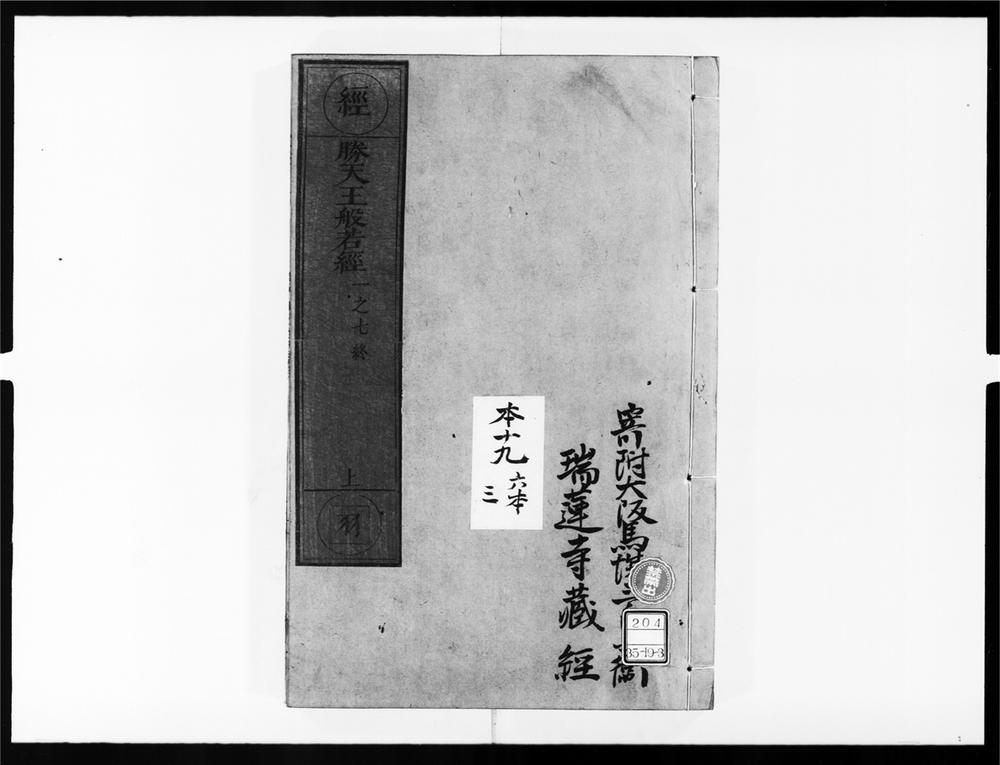 寄附大阪馬
瑞蓮寺藏經
禁帶出
204
35-19-3
本十九
六本
三
經
勝天王般若經一之七終
上
羽